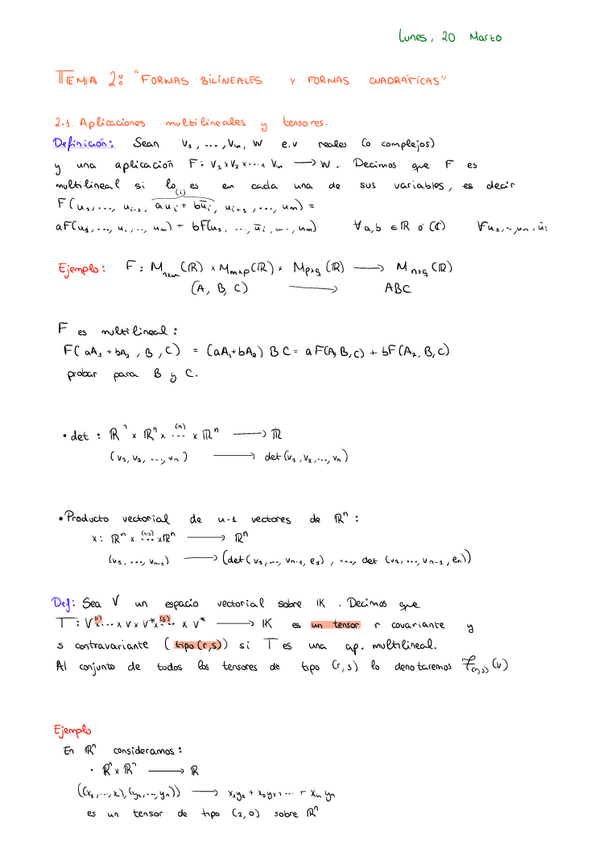 Lunes, 20 Marzo
TEMA 2: "FORMAS BILINEALES Y FORMAS CUADRÁTICAS"
2.1. Aplicaciones multilineales y tensores.
Definición: Sean V₁, ..., Vₘ, W e.v reales (o complejos)
y una aplicación F: V₁×V₂×...×Vₙ → W. Decimos que F es
multilineal si lo es en cada una de sus variables, es decir
(i)
F(u₁, ..., uᵢ₋₁, auᵢ + būᵢ, uᵢ₊₁, ..., uₘ) =
aF(u₁, ..., uᵢ, .., uₘ) + bF(u₁, ..., ūᵢ, ..., uₘ) ∀a,b ∈ ℝ ó (ℂ) ∀u₁, ..., uₘ, ūᵢ
Ejemplo: F: Mₙₓₘ(ℝ) × Mₘₓₚ(ℝ) × Mₚₓq(ℝ) → Mₙₓq(ℝ)
(A, B, C) → ABC
F es multilineal:
F(aA₁ + bA₂, B, C) = (aA₁+bA₂) BC = aF(A, B, C) + bF(A₂, B, C)
probar para B y C.
• det : ℝⁿ × ℝⁿ × ...⁽ⁿ⁾ × ℝⁿ → ℝ
(v₁, v₂, ..., vₙ) → det(v₁, v₂, ..., vₙ)
• Producto vectorial de n-1 vectores de ℝⁿ:
x: ℝⁿ × ...⁽ⁿ⁻¹⁾ × ℝⁿ → ℝⁿ
(v₁, ..., vₙ₋₁) → (det(v₁, ..., vₙ₋₁, e₁), ..., det(v₁, ..., vₙ₋₁, eₙ))
Def: Sea V un espacio vectorial sobre IK. Decimos que
T: V ⁽ʳ⁾... × V × V* ⁽ˢ⁾... × V* → IK es un tensor r covariante y
s contravariante (tipo (r,s)) si T es una ap. multilineal.
Al conjunto de todos los tensores de tipo (r,s) lo denotaremos 𝒯₍ᵣ,ₛ₎(V)
Ejemplo
En ℝⁿ consideramos:
• ℝⁿ × ℝⁿ → ℝ
((x₁, ..., xₙ), (y₁, ..., yₙ)) → x₁y₁ + x₂y₂ + ... + xₙyₙ
es un tensor de tipo (2,0) sobre ℝⁿ